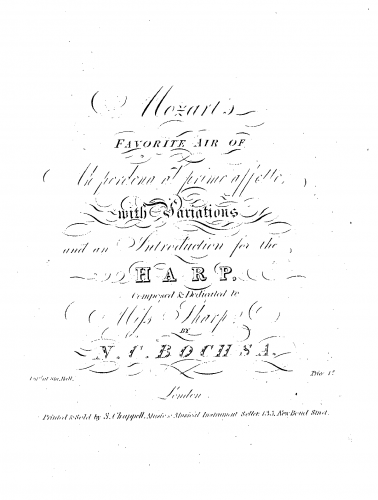 Mozart's
FAVORITE AIR OF
Ah perdona al primo affetto,
with Variations
and an Introduction for the
HARP.
Composed & Dedicated to
Miss Sharp
BY
N. C. BOCHSA.
Ent.d at Sta. Hall.
Price
London.
Printed & Sold by S. Chappell, Music & Musical Instrument Seller, 135, New Bond Street.